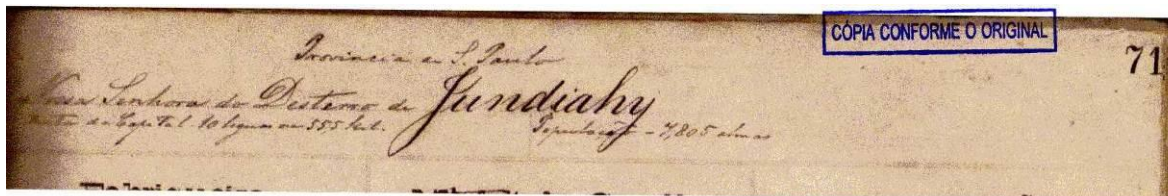 CÓPIA CONFORME O ORIGINAL
71
Provincia de S. Paulo
Nossa Senhora do Desterro de Jundiahy
da Capital 10 leguas ou 555 kil. População - 7,805 almas